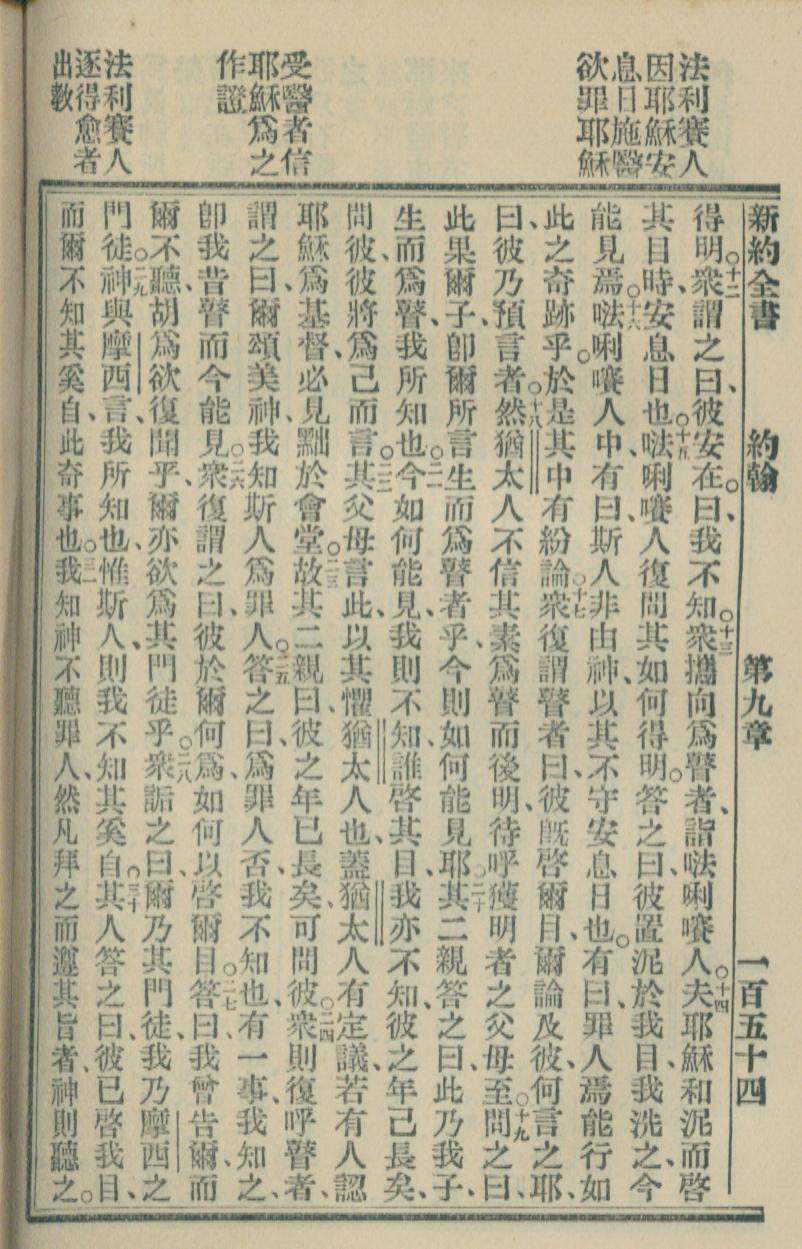 法利賽人
因耶穌安
息日施醫
欲罪耶穌
受醫者信
耶穌爲之
作證
法利賽人
逐得愈者
出教
新約全書 約翰 第九章 一百五十四
得明、○十二衆謂之曰、彼安在。曰、我不知、○十三衆攜向爲瞽者、詣㳒唎㘔人、○十四夫耶穌和泥而啓
其目時、安息日也、○十五㳒唎㘔人復問其如何得明。答之曰、彼置泥於我目、我洗之、今
能見焉、○十六㳒唎㘔人中、有曰、斯人非由神、以其不守安息日也。有曰、罪人焉能行如
此之奇跡乎。於是其中有紛論、○十七衆復謂瞽者曰、彼既啓爾目、爾論及彼、何言之耶、
曰、彼乃預言者、○十八然猶太人不信其素爲瞽而後明、待呼獲明者之父母至、○十九問之曰、
此果爾子、卽爾所言生而爲瞽者乎、今則如何能見耶、○二十其二親答之曰、此乃我子、
生而爲瞽、我所知也、○二一今如何能見、我則不知、誰啓其目、我亦不知、彼之年已長矣、
問彼、彼將爲己而言、○二二其父母言此、以其懼猶太人也、蓋猶太人有定議、若有人認
耶穌爲基督、必見黜於會堂、○二三故其二親曰、彼之年已長矣、可問彼、○二四衆則復呼瞽者、
謂之曰、爾頌美神、我知斯人爲罪人、○二五答之曰、爲罪人否、我不知也、有一事、我知之、
卽我昔瞽而今能見、○二六衆復謂之曰、彼於爾何爲、如何以啓爾目、○二七答曰、我曾告爾、而
爾不聽、胡爲欲復聞乎、爾亦欲爲其門徒乎、○二八衆詬之曰、爾乃其門徒、我乃摩西之
門徒、○二九神與摩西言、我所知也、惟斯人、則我不知其奚自、○三十其人答之曰、彼已啓我目、
而爾不知其奚自、此奇事也、○三一我知神不聽罪人、然凡拜之而遵其旨者、神則聽之。